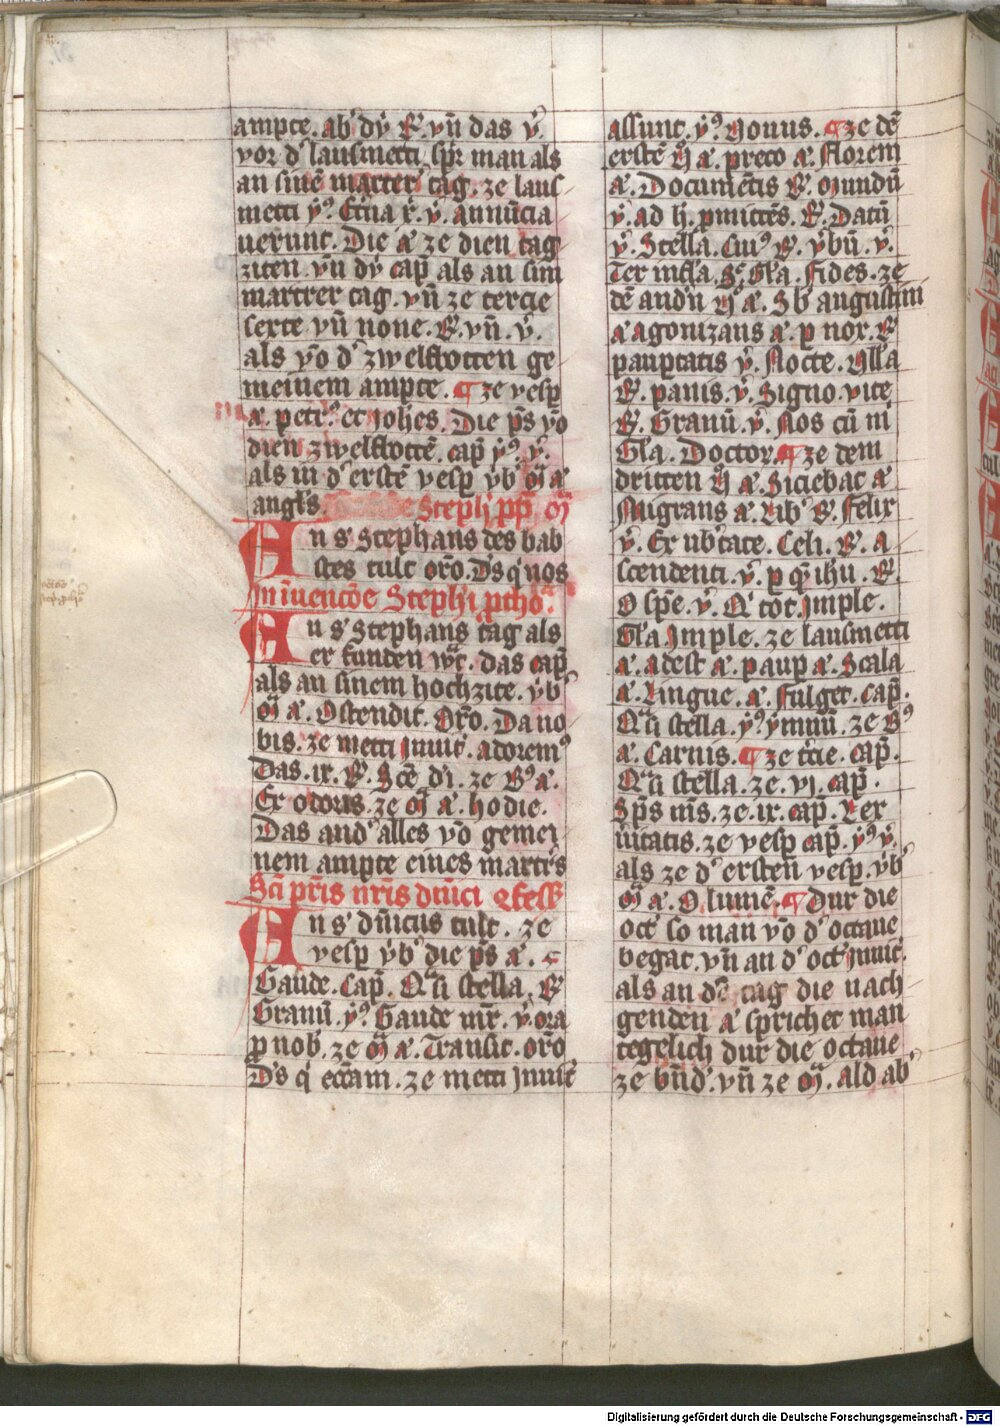 ampte. ab' dÿ R̷. vn̄ das v̓.
vor d' lausmetti spr̄ man als
an sinē martrer tag. ze laus
metti ẏ9. Et̄na r̓. v̓. annūcia
uerunt. Die a̓ ze dien tag
ziten. vn̄ dÿ cap̄ als an sim
martrer tag. vn̄ ze tercie
sexte vn̄ none. R̷. vn̄. v̓.
als vō d' zwelfbotten ge
meinem ampte. ¶ ze vesp̄
a̓. petr9. et Johēs. Die p̄s vō
dien zwelfbottē. cap̄ ẏ9. v̓.
als in d' erstē vesp̄ vb' m̄ a̓
angl̄s. Steph̄ pp̄ m̄
An s̓ Stephans des bab
stes tult or̄o. Ds̄ q' nos
In īuencōe Steph̄i p̄tho.
An s̓ Stephans tag als
er funden wt̄. das cap̄
als an sinem hochzite. vb'
m̄ a̓. Ostendit. Or̄o. Da no
bis. ze metti Inuit̄. adorem9
Das. ix. R̷. Scē d̄i. ze B9 a̓.
Ex odoris. ze m̄ a̓. hodie.
Das and' alles vō gemei
nem ampte eines martr̄s
Sc̄i pr̄is nr̄is dn̄ici ɔfess̄
An s̓ dn̄icus tult. ze
vesp̄ vb' die p̄s a̓.
Gaude. Cap̄. Qͣsi stella. R̷
Granū. ẏ9. Gaude mr̄. v̓. ora
p̄ nob̄. ze m̄ a̓. Transit. or̄o
Ds̄ q' ecc̄am. ze metti Inuit̄
assunt. ẏ9. Nouus. ¶ ze dē
erstē n̄ a̓. preco a̓. Florem
a̓. Documētis R̷. Mundū
v̓. ad h̄. p̄mittēs. R̷. Datū
v̓. Stella. Cui9 R̷. v̓bū. v̓.
Ter infl̄a. Gl̄a. Fides. ze
dē andn̄ n̄ a̓. Sb' augustini
a̓ agonizans a̓. p̄ nox. R̷
paup̄tatis v̓. Nocte. Illa
R̷. panis. v̓. Signo. vite
R̷. Granū. v̓. Nos cū ni
Gl̄a. Doctor. ¶ ze dem
dritten n̄ a̓. Siciebat a̓
Migrans a̓. Lib' R̷. Felix
v̓. Ex vb'tate. Celi. R̷. a
scendenti. v̓. p̄ qm̄ ihū. R̷.
O sp̄e. v̓. Qͥ tot. Imple.
Gl̄a Imple. ze lausmetti
a̓. adest a̓. paup̄ a̓. Scala
a̓. Lingue. a̓. Fulget. cap̄.
Qͣsi stella. ẏ9. ẏmnū. ze B9
a̓. Carnis. ¶ ze t̄cie. cap̄.
Qͣsi stella. ze. vj. cap̄.
Sp̄s m̄s. ze. ix. cap̄. Lex
v̄itatis. ze vesp̄ cap̄. ẏ9 v̓.
als ze d' ersten vesp̄. vb'
m̄ a̓. O lumē. ¶ Dur die
oct̄ so man vō d' octaue
begat. vn̄ an d' oct̄ Inuit̄.
als an dē tag die nach
genden a̓ sprichet man
tegelich dur die octaue
ze bn̄d'. vn̄ ze m̄. ald ab'
Digitalisierung gefördert durch die Deutsche Forschungsgemeinschaft - DFG